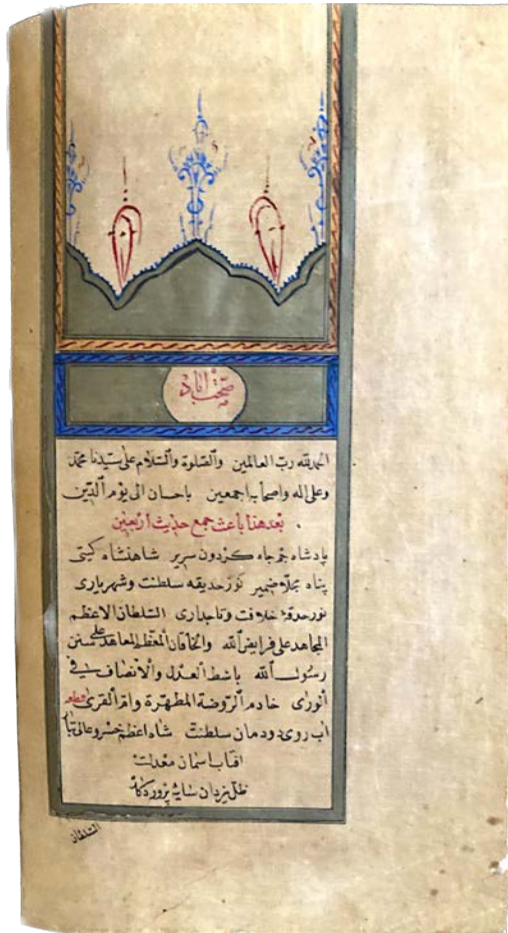 صحت اباد
الحمدلله ربّ العالمين والصّلوة والسّلام على سيّدنا محمّد
وعلى اله واصحابه اجمعين باحسان الى يوم الدّين
بعد هذا باعث جمع حديث اربعين
پادشاه جم جاه كردون سرير شاهنشاه كيتى
پناه مجلا ضمير نور حديقه سلطنت وشهريارى
نور حدقهٔ خلافت وتاجدارى السّلطان الاعظم
المجاهد على فرايض الله والخاقان المعظّم المعاهد على سنن
رسول الله باسط العدل والانصاف فى
الورى خادم الرّوضة المطهّرة وامّ القرى قطعه
اب روى دودمان سلطنت شاه اعظم خسرو عالى
افتاب اسمان معدلت
ظلّ يزدان سايهٔ پروردكار
السّلطان